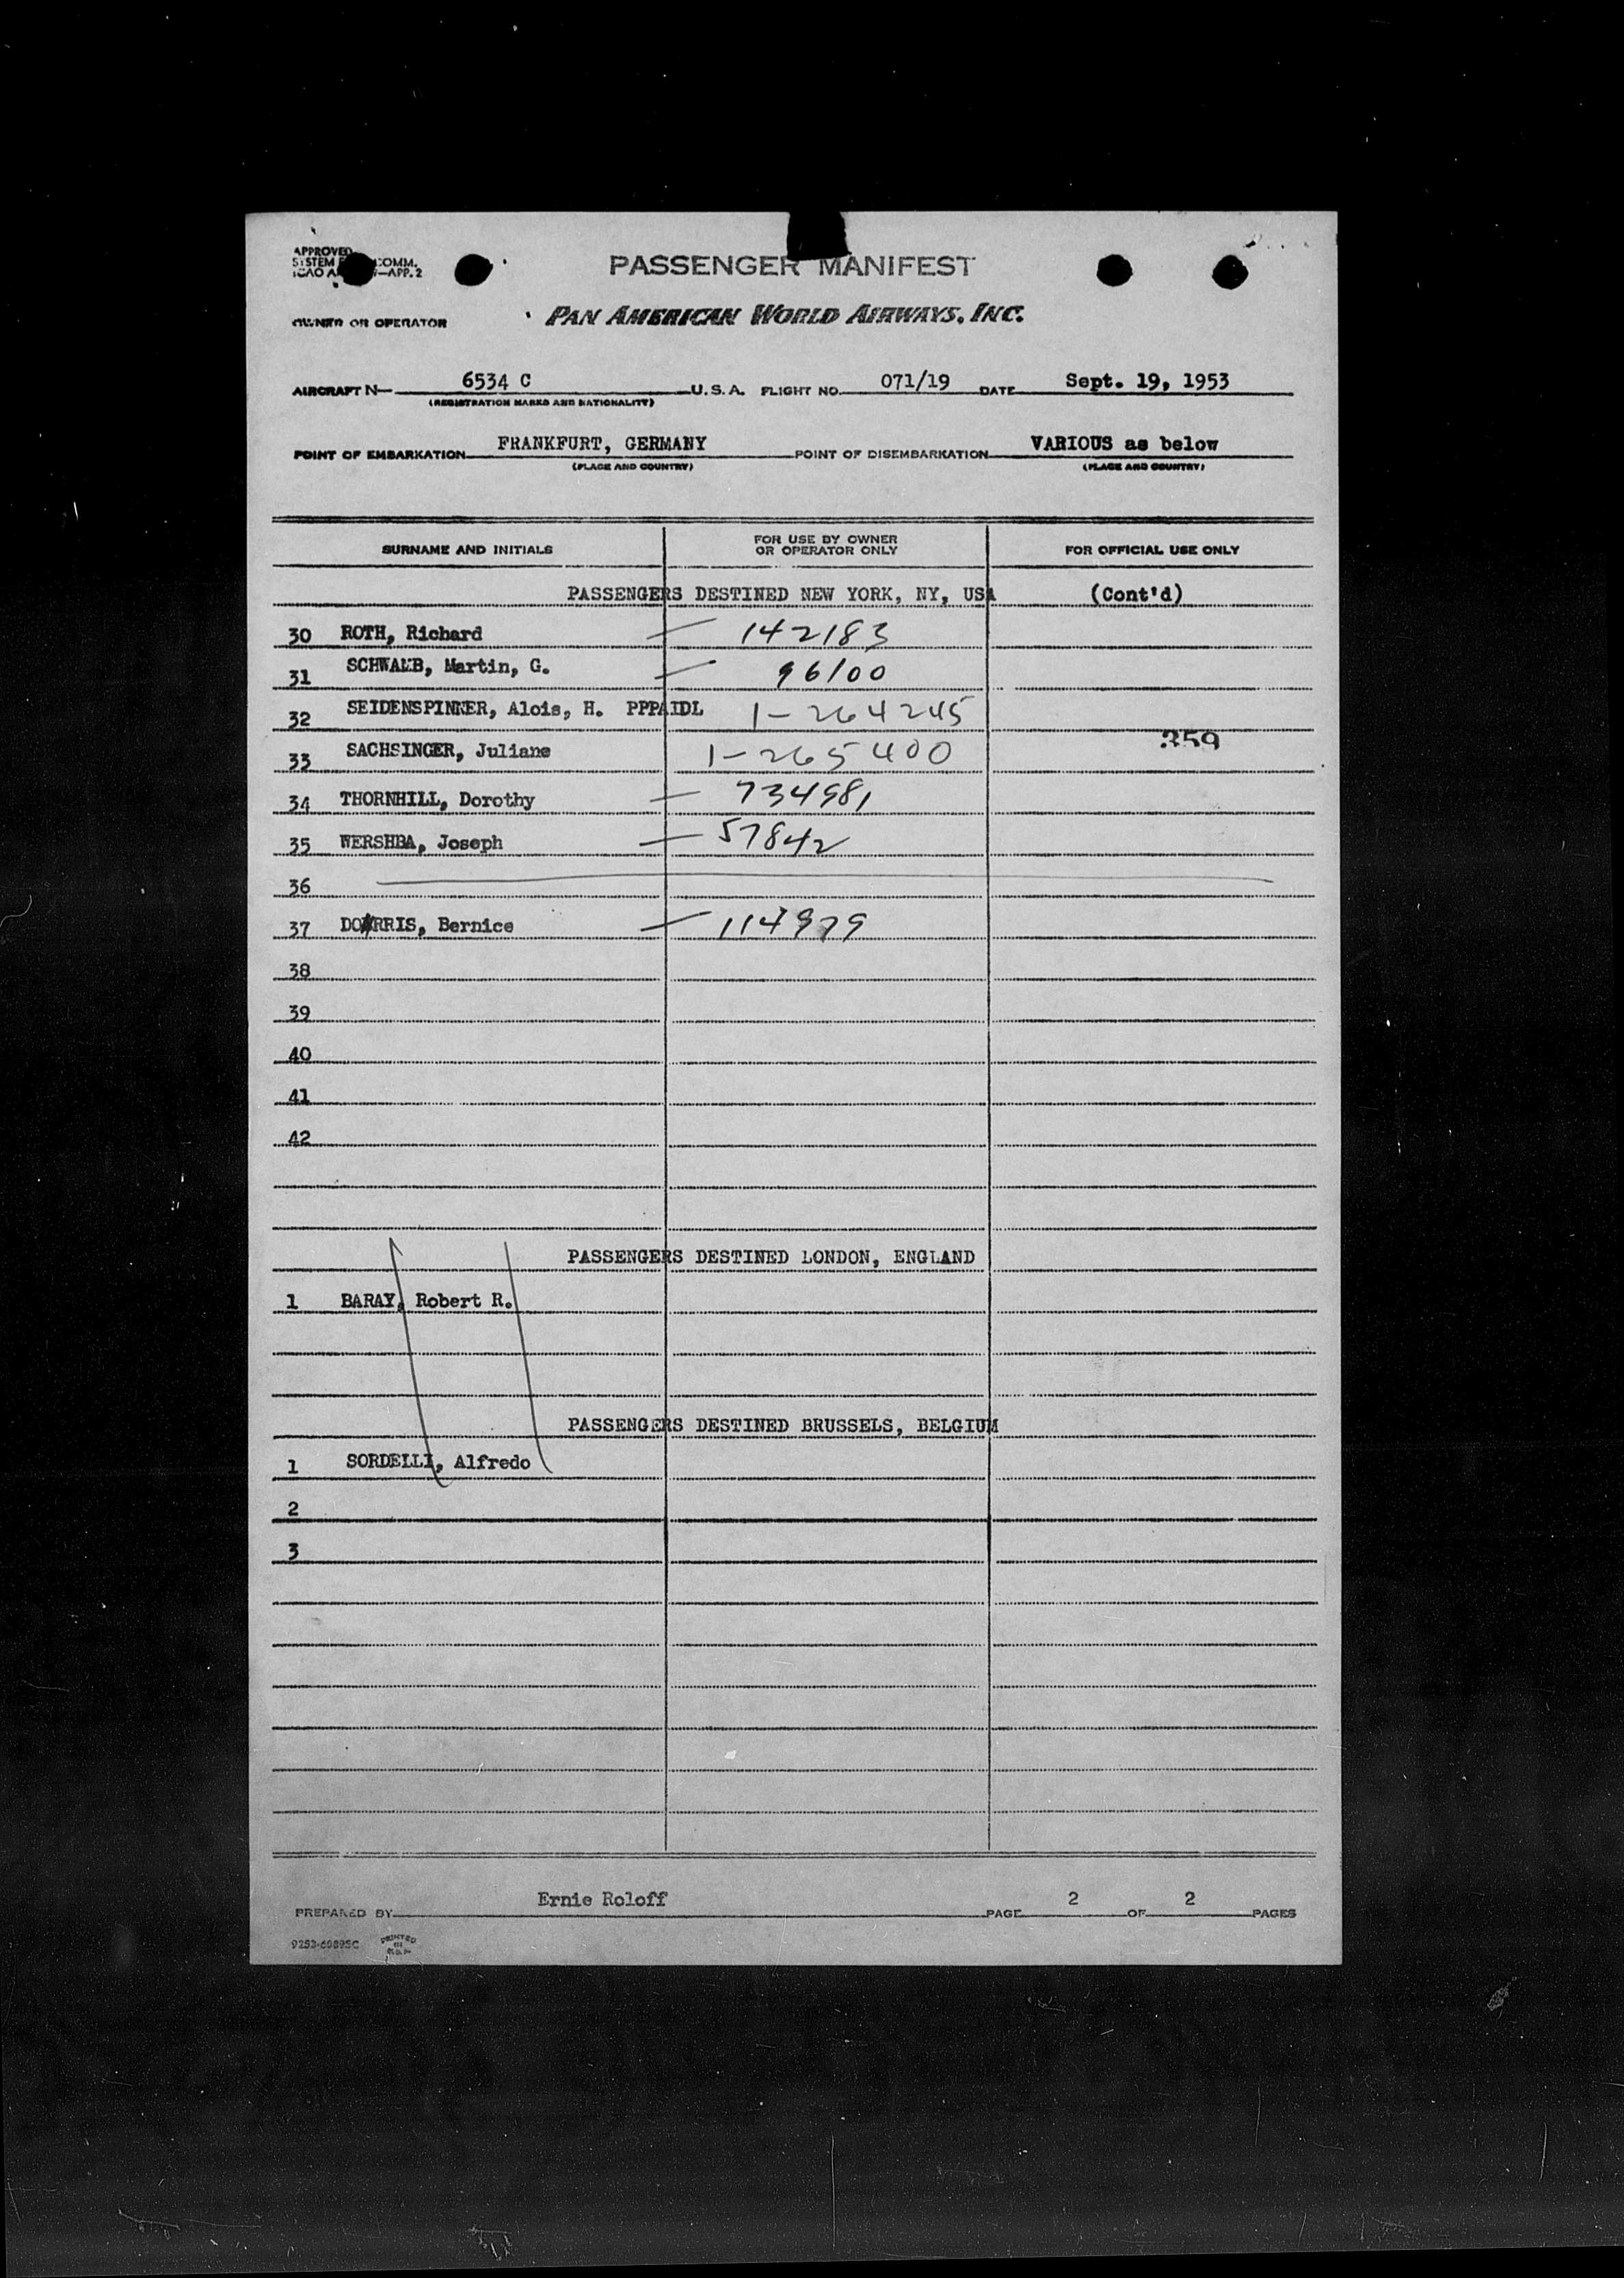 APPROVED
SYSTEM COMM.
ICAO —APP. 2
PASSENGER MANIFEST
OWNER OR OPERATOR PAN AMERICAN WORLD AIRWAYS, INC.
AIRCRAFT N— 6534 C U.S.A. FLIGHT NO. 071/19 DATE Sept. 19, 1953
(REGISTRATION MARKS AND NATIONALITY)
POINT OF EMBARKATION FRANKFURT, GERMANY POINT OF DISEMBARKATION VARIOUS as below
(PLACE AND COUNTRY) (PLACE AND COUNTRY)
SURNAME AND INITIALS FOR USE BY OWNER OR OPERATOR ONLY FOR OFFICIAL USE ONLY
PASSENGERS DESTINED NEW YORK, NY, USA (Cont'd)
30 ROTH, Richard — 142183
31 SCHWAMB, Martin, G. — 96100
32 SEIDENSPINNER, Alois, H. PPPAIDL 1-264245
33 SACHSINGER, Juliane 1-265400 359
34 THORNHILL, Dorothy — 734981
35 WERSHBA, Joseph — 57842
36
37 DORRIS, Bernice — 114979
38
39
40
41
42
PASSENGERS DESTINED LONDON, ENGLAND
1 BARAY, Robert R.
PASSENGERS DESTINED BRUSSELS, BELGIUM
1 SORDELLI, Alfredo
2
3
PREPARED BY Ernie Roloff PAGE 2 OF 2 PAGES
9253-60895C PRINTED IN U.S.A.